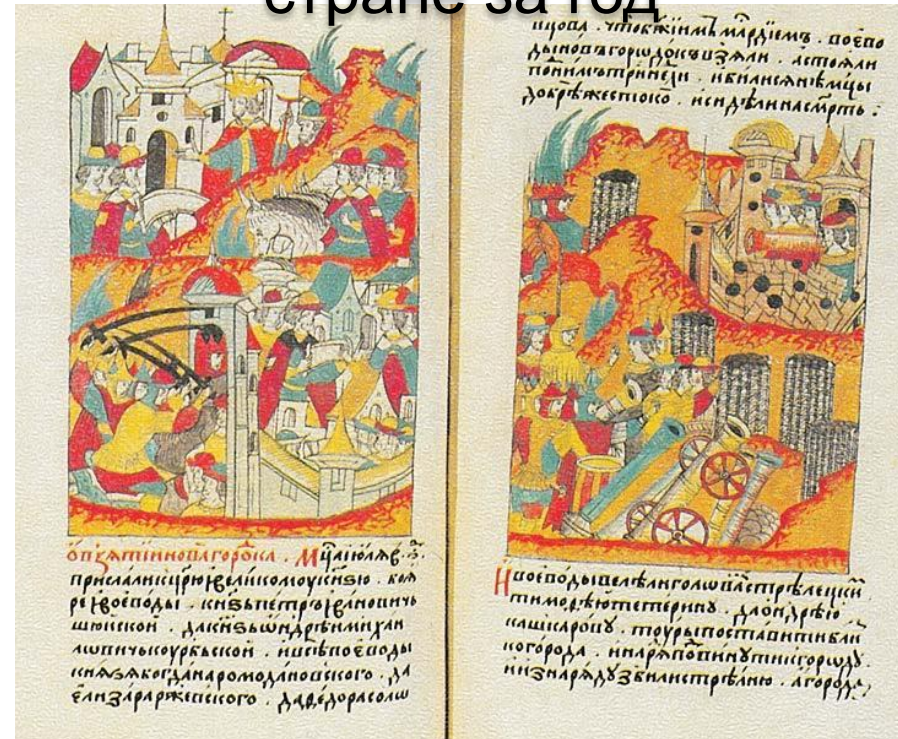 стране за год
ѻвзѧтїинновагорѡ́ка . Мц҃аіюлѧв҃ .
прислаликцр҃юивеликомоукнѕю . боѧ
реивоеводы . кнѕьпетръивановичь
шюискои . дакнѕьѡндрѣимихаи
ловичькоурбьскои . ивсѣвоеводы
кнѧѕѧбогданаромодановского . да
елизараржевского . даѳедорасолѡ
нцова . чтобж҃їимъмл҃рдїемъ . воево
дыновъгородокъвзѧли . астоѧли
поднимътринеди . ибилисѧнѣмцы
добрѣжестоко . исидѣлинасмр҃ть :
Ивоеводывелѣлиголовастрѣлецки
тимоѳѣютетерину . даондрѣю
кашкарову . тоурыпоставитиблиз
когорода . инарѧпо́винутикгороду .
иизнарѧдузбилистрѣлню . агорода